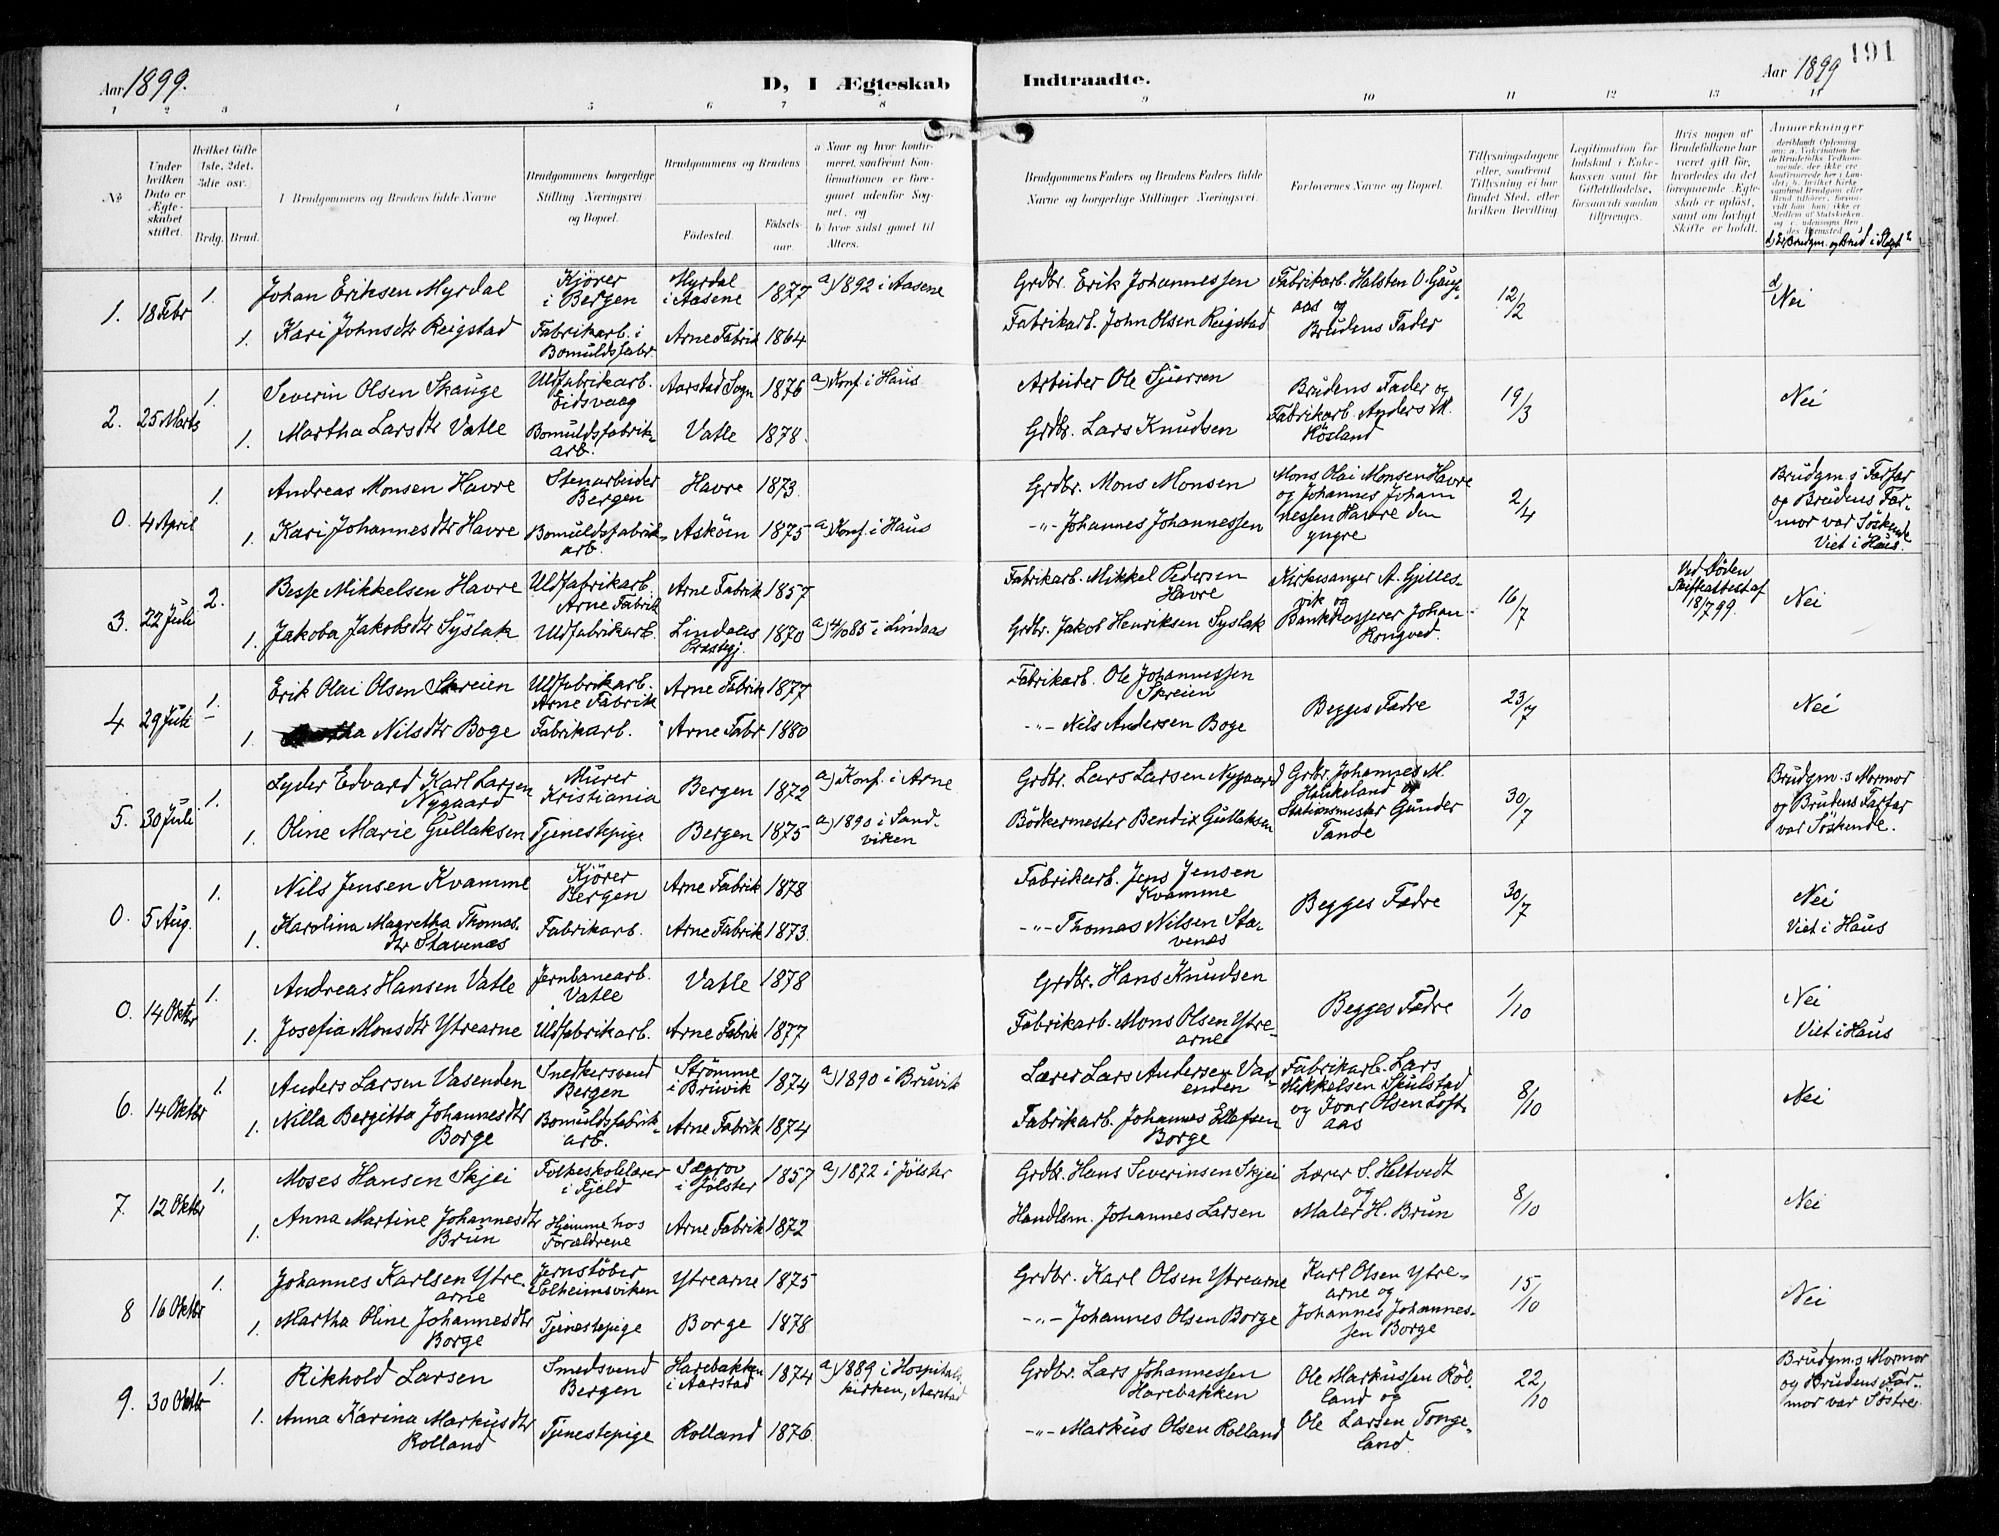 Aar 1899.
D, I Ægteskab Indtraadte.
Aar 1899
191
1 2 3 4 5 6 7 8 9 10 11 12 13 14
No
Under hvilken Dato er Ægteskabet stiftet.
Hvilket Gifte (1ste, 2det, 3die osv.)
Brdg. Brud.
Brudgommens og Brudens fulde Navne
Brudgommens borgerlige Stilling Næringsvei og Bopæl.
Brudgommens og Brudens
Fødested.
Fødselsaar.
a Naar og hvor konfirmeret, saafremt Konfirmationen er foregaaet udenfor Sognet, og
b hvor sidst gaaet til Alters.
Brudgommens Faders og Brudens Faders fulde Navne og borgerlige Stillinger Næringsvei.
Forlovernes Navne og Bopæl.
Tillysningsdagene eller, saafremt Tillysning ei har fundet Sted, efter hvilken Bevilling
Legitimation for Indskud i Enkekassen samt for Giftetilladelse, forsaavidt saadan tiltrænges.
Hvis nogen af Brudefolkene har været gift før, hvorledes da det foregaaende Ægteskab er opløst, samt om lovligt Skifte er holdt.
Anmerkninger
d) Er Brudgm. og Brud i Slægt?
1. 18 Febr 1. Johan Eriksen Myrdal Kjører i Bergen Myrdal i Aasene 1877 a) 1892 i Aasene Grdbr. Erik Johannessen Fabrikarb. Halsten O. Gaupaas og Brudens Fader 12/2 d Nei
1. Kari Johnsdtr Reigstad Fabrikarb. i Bomuldsfabr. Arne Fabrik 1864 Fabrikarb. John Olsen Reigstad
2. 25 Marts 1. Severin Olsen Skauge Uldfabrikarb. Eidsvaag Aarstad Sogn 1876 a) Konf. i Haus Arbeider Ole Sjursen Brudens Fader og Fabrikarb. Anders M. Høsland 19/3 Nei
1. Martha Larsdtr Vatle Bomuldsfabrikarb. Vatle 1878. Grdbr. Lars Knudsen
0. 4 April 1. Andreas Monsen Havre Stenarbeider Bergen Havre 1873. Grdbr. Mons Monsen Mons Olai Monsen Havre og Johannes Johannessen Havre den yngre 2/4 Brudgm.s Farfar og Brudens Farmor var Søskende Viet i Haus.
1. Kari Johannesdtr Havre Bomuldsfabrikarb. Askøen 1875 a) Konf. i Haus -"- Johannes Johannessen
3. 22 Juli 2. Besse Mikkelsen Havre Uldfabrikarb. Arne Fabrik Arne Fabrik 1857 Fabrikarb. Mikkel Pedersen Havre Kirkesanger A. Gjillesvik og Bankkasserer Johan Rongved. 16/7 Ved Døden Skifteattest af 18/7 99. Nei
1. Jakoba Jakobsdtr Syslak Uldfabrikarb. Lindaas Præstegj. 1870 a) 4/10 85 i Lindaas Grdbr. Jakob Henriksen Syslak
4 29 Juli 1. Erik Olai Olsen Skreien Uldfabrikarb. Arne Fabrik Arne Fabrik 1877 Fabrikarb. Ole Johannessen Skreien Begges Fædre 23/7 Nei
1. Nilsdtr Boge Fabrikarb. Arne Fabr 1880 -"- Nils Andersen Boge
5. 30 Juli 1. Lyder Edvard Karl Larsen Nygaard Murer Kristiania Bergen 1872 a) Konf. i Arne Grdbr. Lars Larsen Nygaard Grdbr. Johannes M. Haukeland og Stationsmester Gunder Tande 30/7 Brudgm.s Mormor og Brudens Farfar var Søskende.
1. Oline Marie Gullaksen Tjenestepige Bergen 1875 a) 1890 i Sandviken Bødkermester Bendix Gullaksen
0. 5 Aug. 1. Nils Jensen Kvamme Kjører Bergen Arne Fabrik 1878 Fabrikarb. Jens Jensen Kvamme Begges Fædre 30/7 Nei Viet i Haus
1. Karolina Magretha Thomasdtr Stavenæs Fabrikarb. Arne Fabrik 1873. -"- Thomas Nilsen Stavenes
0. 14 Oktbr 1. Andreas Hansen Vatle Jernbanearb. Vatle Vatle 1878 Grdbr. Hans Knudsen Begges Fædre 1/10 Nei Viet i Haus
1. Josefia Monsdtr Ytrearne Uldfabrikarb. Arne Fabrik 1877 Fabrikarb. Mons Olsen Ytrearne
6. 14 Oktbr 1. Anders Larsen Vasenden Snedkersvend Bergen Strømme i Bruvik 1874 a) 1890 i Bruvik Lærer Lars Andersen Vasenden Fabrikarb. Lars Mikkelsen Skulstad og Ivar Olsen Loftaas 8/10 Nei
1. Nilla Bergitta Johannesdtr Borge Bomuldsfabrikarb. Arne Fabrik 1874 Fabrikarb. Johannes Ellefsen Borge
7. 12 Oktbr 1. Moses Hansen Skjei Folkeskolelærer i Fjeld Sægrov i Jølster 1857 a) 1872 i Jølster Grdbr. Hans Severinsen Skjei Lærer S. Heltvedt og Maler H. Brun 8/10 Nei
1. Anna Martine Johannesdtr Brun Hjemme hos Forældrene Arne Fabrik 1872 Handlsm. Johannes Larsen
8 16 Oktbr 1. Johannes Karlsen Ytrearne Jernstøber Solheimsviken Ytrearne 1875 Grdbr. Karl Olsen Ytrearne Karl Olsen Ytrearne og Johannes Johannessen Borge 15/10 Nei
1. Martha Oline Johannesdtr Borge Tjenestepige Borge 1878 -"- Johannes Olsen Borge
9. 30 Oktbr 1. Rikhold Larsen Smedsvend Bergen Harebakken i Aarstad 1874 a) 1889 i Hospitalskirken, Aarstad Grdbr. Lars Johannessen Harebakken Ole Markussen Rølland og Ole Larsen Tongeland. 22/10 Brudgm.s Mormor og Brudens Farmor var Søstre.
1. Anna Karina Markusdtr Rolland Tjenestepige Rolland 1876 -"- Markus Olsen Rolland